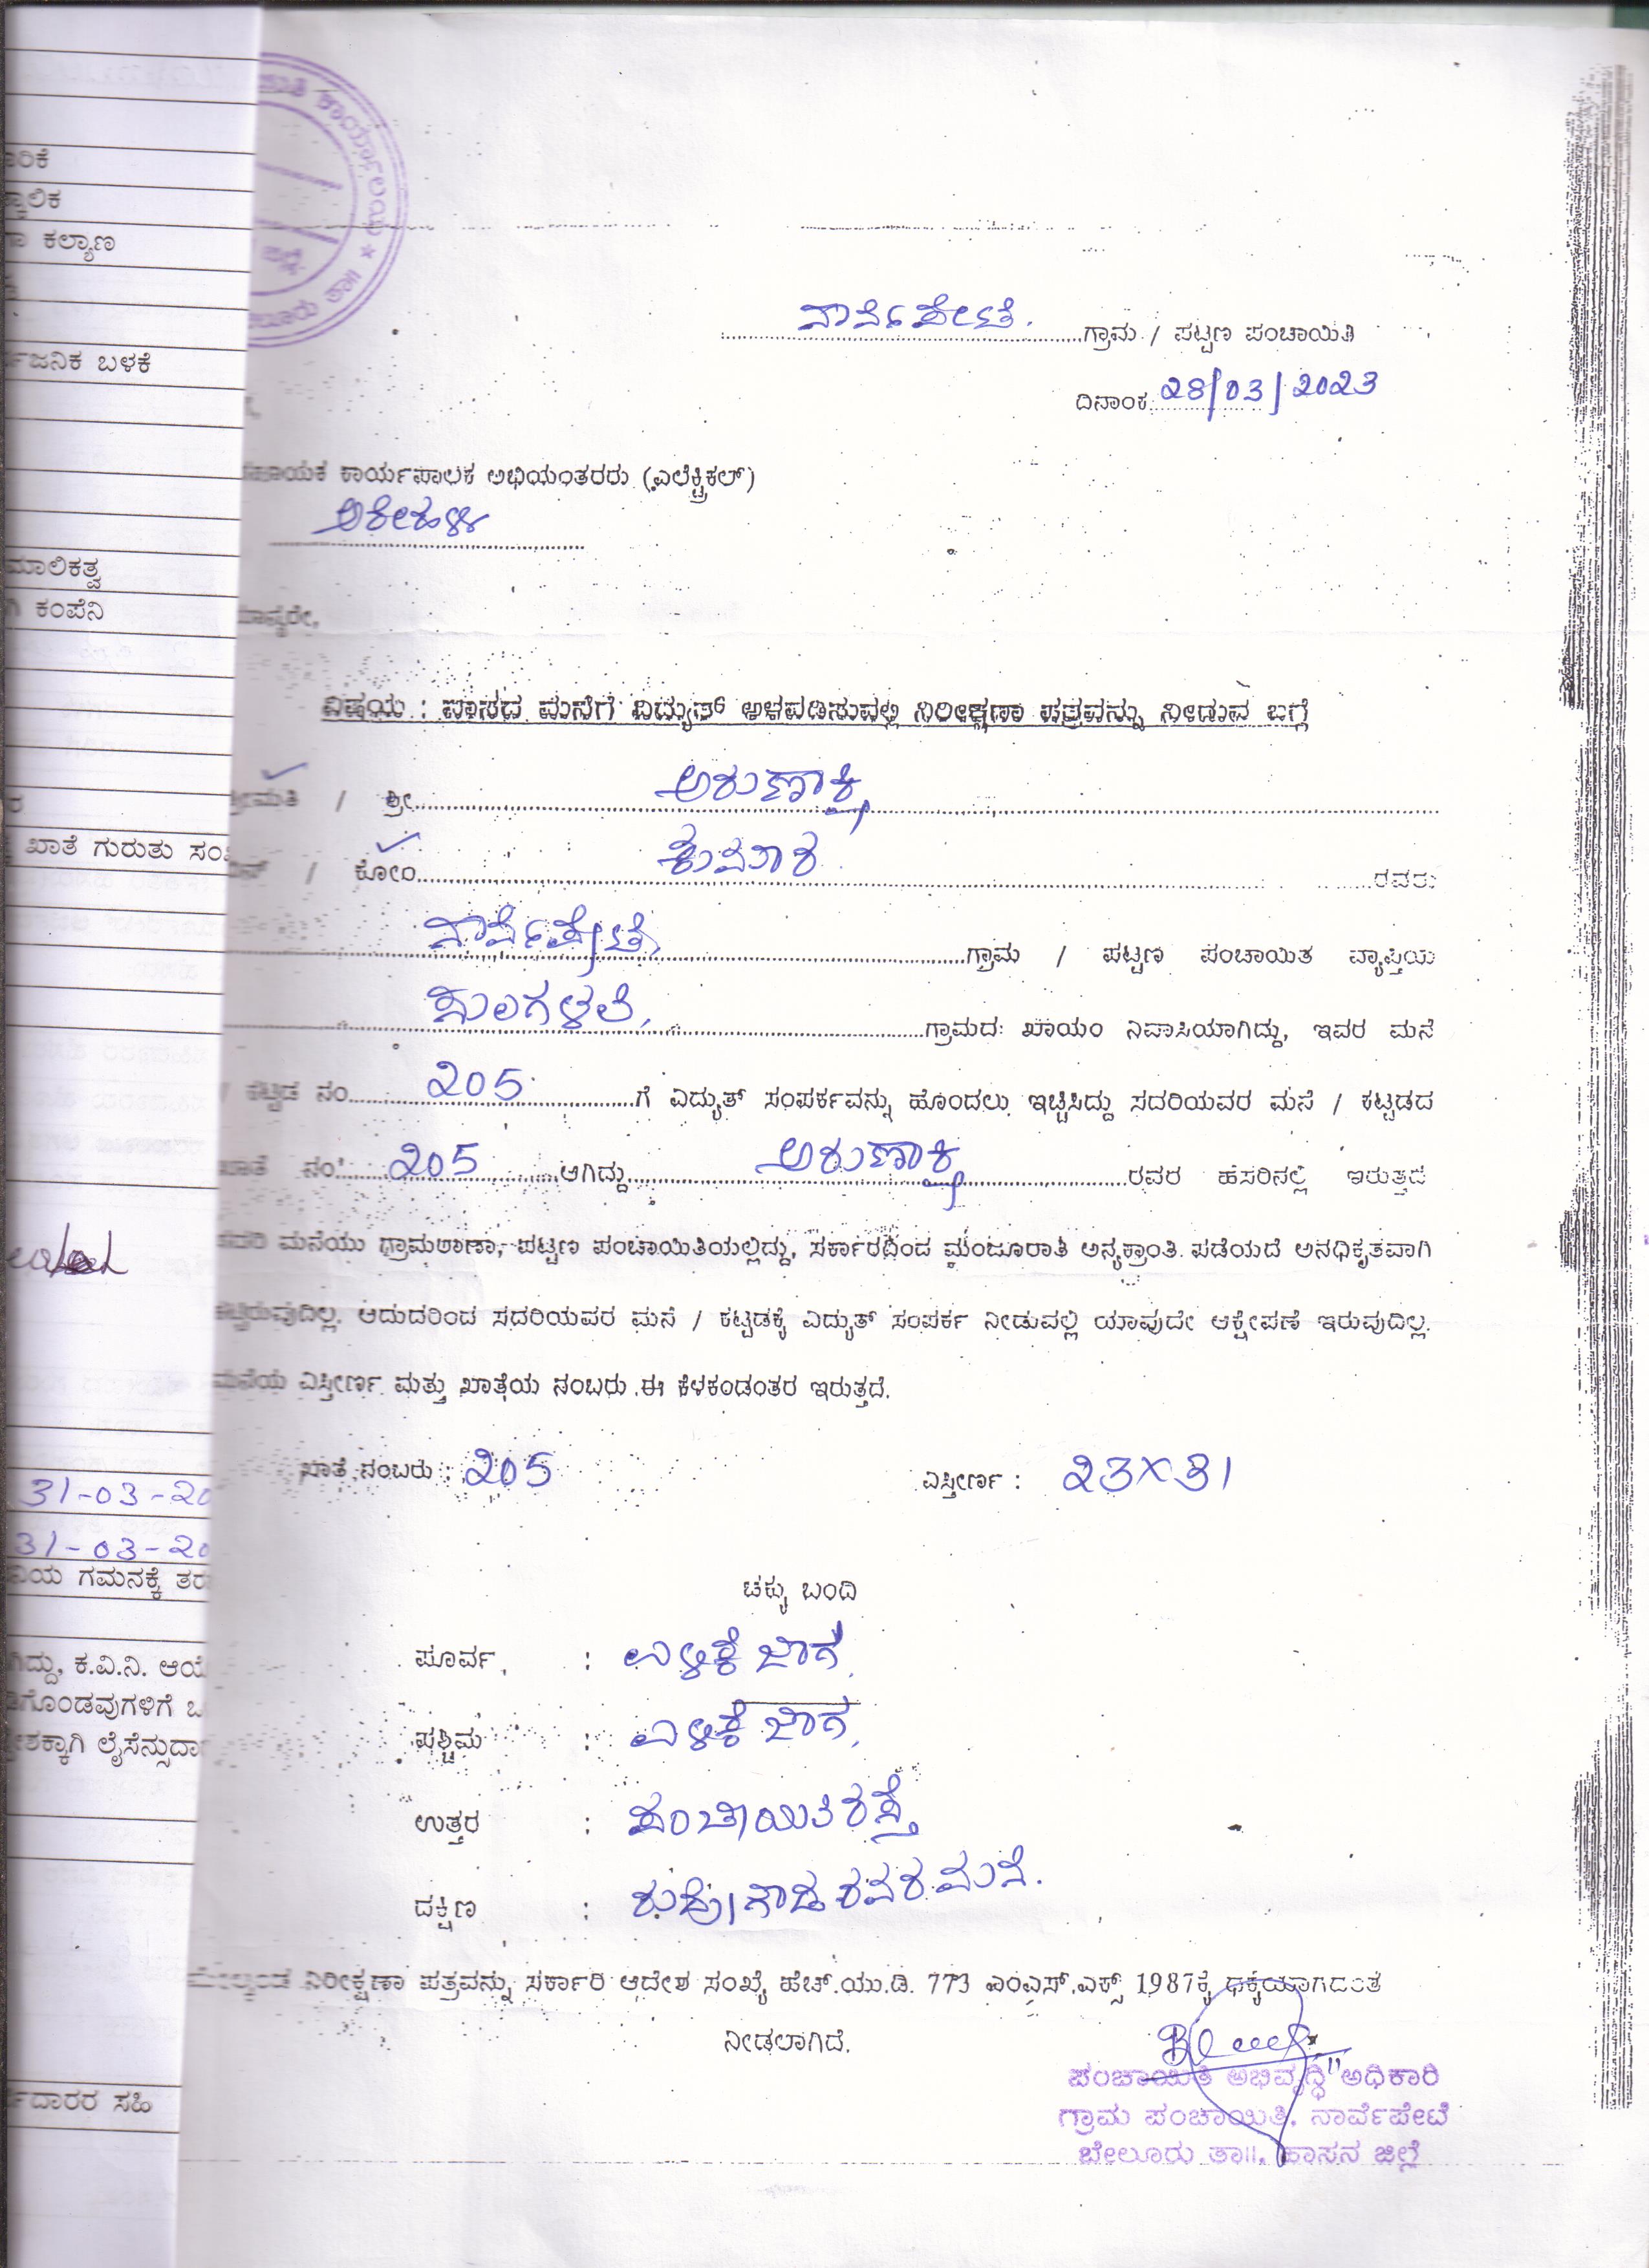 ಕಾರ್ಯಾಲಯ
ನಾರ್ವೆಪೇಟೆ. ಗ್ರಾಮ / ಪಟ್ಟಣ ಪಂಚಾಯಿತಿ
ದಿನಾಂಕ: 28/03/2023
ಸಹಾಯಕ ಕಾರ್ಯಪಾಲಕ ಅಭಿಯಂತರರು (ಎಲೆಕ್ಟ್ರಿಕಲ್)
ಅರೇಹಳ್ಳಿ
ಮಾನ್ಯರೇ,
ವಿಷಯ : ವಾಸದ ಮನೆಗೆ ವಿದ್ಯುತ್ ಅಳವಡಿಸುವಲ್ಲಿ ನಿರೀಕ್ಷಣಾ ಪತ್ರವನ್ನು ನೀಡುವ ಬಗ್ಗೆ
ಶ್ರೀಮತಿ / ಶ್ರೀ ಅರುಣಾಕ್ಷಿ
/ ಕೋಂ ಕುಮಾರ ರವರು
ನಾರ್ವೆಪೇಟೆ, ಗ್ರಾಮ / ಪಟ್ಟಣ ಪಂಚಾಯಿತ ವ್ಯಾಪ್ತಿಯ
ಗ್ರಾಮದ ಖಾಯಂ ನಿವಾಸಿಯಾಗಿದ್ದು, ಇವರ ಮನೆ
/ ಕಟ್ಟಡ ನಂ 205 ಗೆ ವಿದ್ಯುತ್ ಸಂಪರ್ಕವನ್ನು ಹೊಂದಲು ಇಚ್ಛಿಸಿದ್ದು ಸದರಿಯವರ ಮನೆ / ಕಟ್ಟಡದ
ಖಾತೆ ನಂ 205 ಆಗಿದ್ದು ಅರುಣಾಕ್ಷಿ ರವರ ಹೆಸರಿನಲ್ಲಿ ಇರುತ್ತದೆ
ಸದರಿ ಮನೆಯು ಗ್ರಾಮಠಾಣಾ, ಪಟ್ಟಣ ಪಂಚಾಯಿತಿಯಲ್ಲಿದ್ದು, ಸರ್ಕಾರದಿಂದ ಮಂಜೂರಾತಿ ಅನ್ಯಕ್ರಾಂತಿ ಪಡೆಯದೆ ಅನಧಿಕೃತವಾಗಿ
ಕಟ್ಟಿರುವುದಿಲ್ಲ. ಆದುದರಿಂದ ಸದರಿಯವರ ಮನೆ / ಕಟ್ಟಡಕ್ಕೆ ವಿದ್ಯುತ್ ಸಂಪರ್ಕ ನೀಡುವಲ್ಲಿ ಯಾವುದೇ ಆಕ್ಷೇಪಣೆ ಇರುವುದಿಲ್ಲ.
ಮನೆಯ ವಿಸ್ತೀರ್ಣ ಮತ್ತು ಖಾತೆಯ ನಂಬರು ಈ ಕೆಳಕಂಡಂತರ ಇರುತ್ತದೆ.
ಖಾತೆ ನಂಬರು : 205 ವಿಸ್ತೀರ್ಣ : 23×31
ಚಕ್ಕು ಬಂದಿ
ಪೂರ್ವ : ಉಳಿಕೆ ಜಾಗ,
ಪಶ್ಚಿಮ : ಉಳಿಕೆ ಜಾಗ,
ಉತ್ತರ : ಪಂಚಾಯಿತಿ ರಸ್ತೆ
ದಕ್ಷಿಣ : ರವರ ಮನೆ.
ಮೇಲ್ಕಂಡ ನಿರೀಕ್ಷಣಾ ಪತ್ರವನ್ನು ಸರ್ಕಾರಿ ಆದೇಶ ಸಂಖ್ಯೆ ಹೆಚ್.ಯು.ಡಿ. 773 ಎಂಎಸ್.ಎಕ್ಸ್ 1987ಕ್ಕೆ
ನೀಡಲಾಗಿದೆ.
ಪಂಚಾಯಿತಿ ಅಭಿವೃದ್ಧಿ ಅಧಿಕಾರಿ
ಗ್ರಾಮ ಪಂಚಾಯಿತಿ, ನಾರ್ವೆಪೇಟೆ
ಬೇಲೂರು ತಾ॥, ಹಾಸನ ಜಿಲ್ಲೆ
ಕಲ್ಯಾಣ
ಬಳಕೆ
ಮಾಲಿಕತ್ವ
ಕಂಪೆನಿ
ಖಾತೆ ಗುರುತು
31-03-20
31-03-20
ಗಮನಕ್ಕೆ
ಕ.ವಿ.ನಿ.
ಸಹಿ